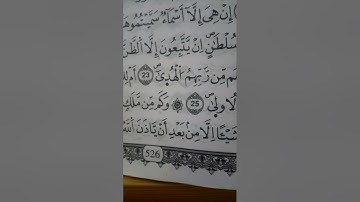 إِنْ هِيَ إِلَّآ أَسْمَآءٌ سَمَّيْتُمُوهَآ
سُلْطَٰنٍ إِنْ يَتَّبِعُونَ إِلَّا الظَّنَّ
مِنْ رَبِّهِمُ الْهُدَىٰ 23 أَمْ
الْأُولَىٰ 25 وَكَمْ مِنْ مَلَكٍ
شَيْئًا إِلَّا مِنْ بَعْدِ أَنْ يَأْذَنَ اللَّهُ
526